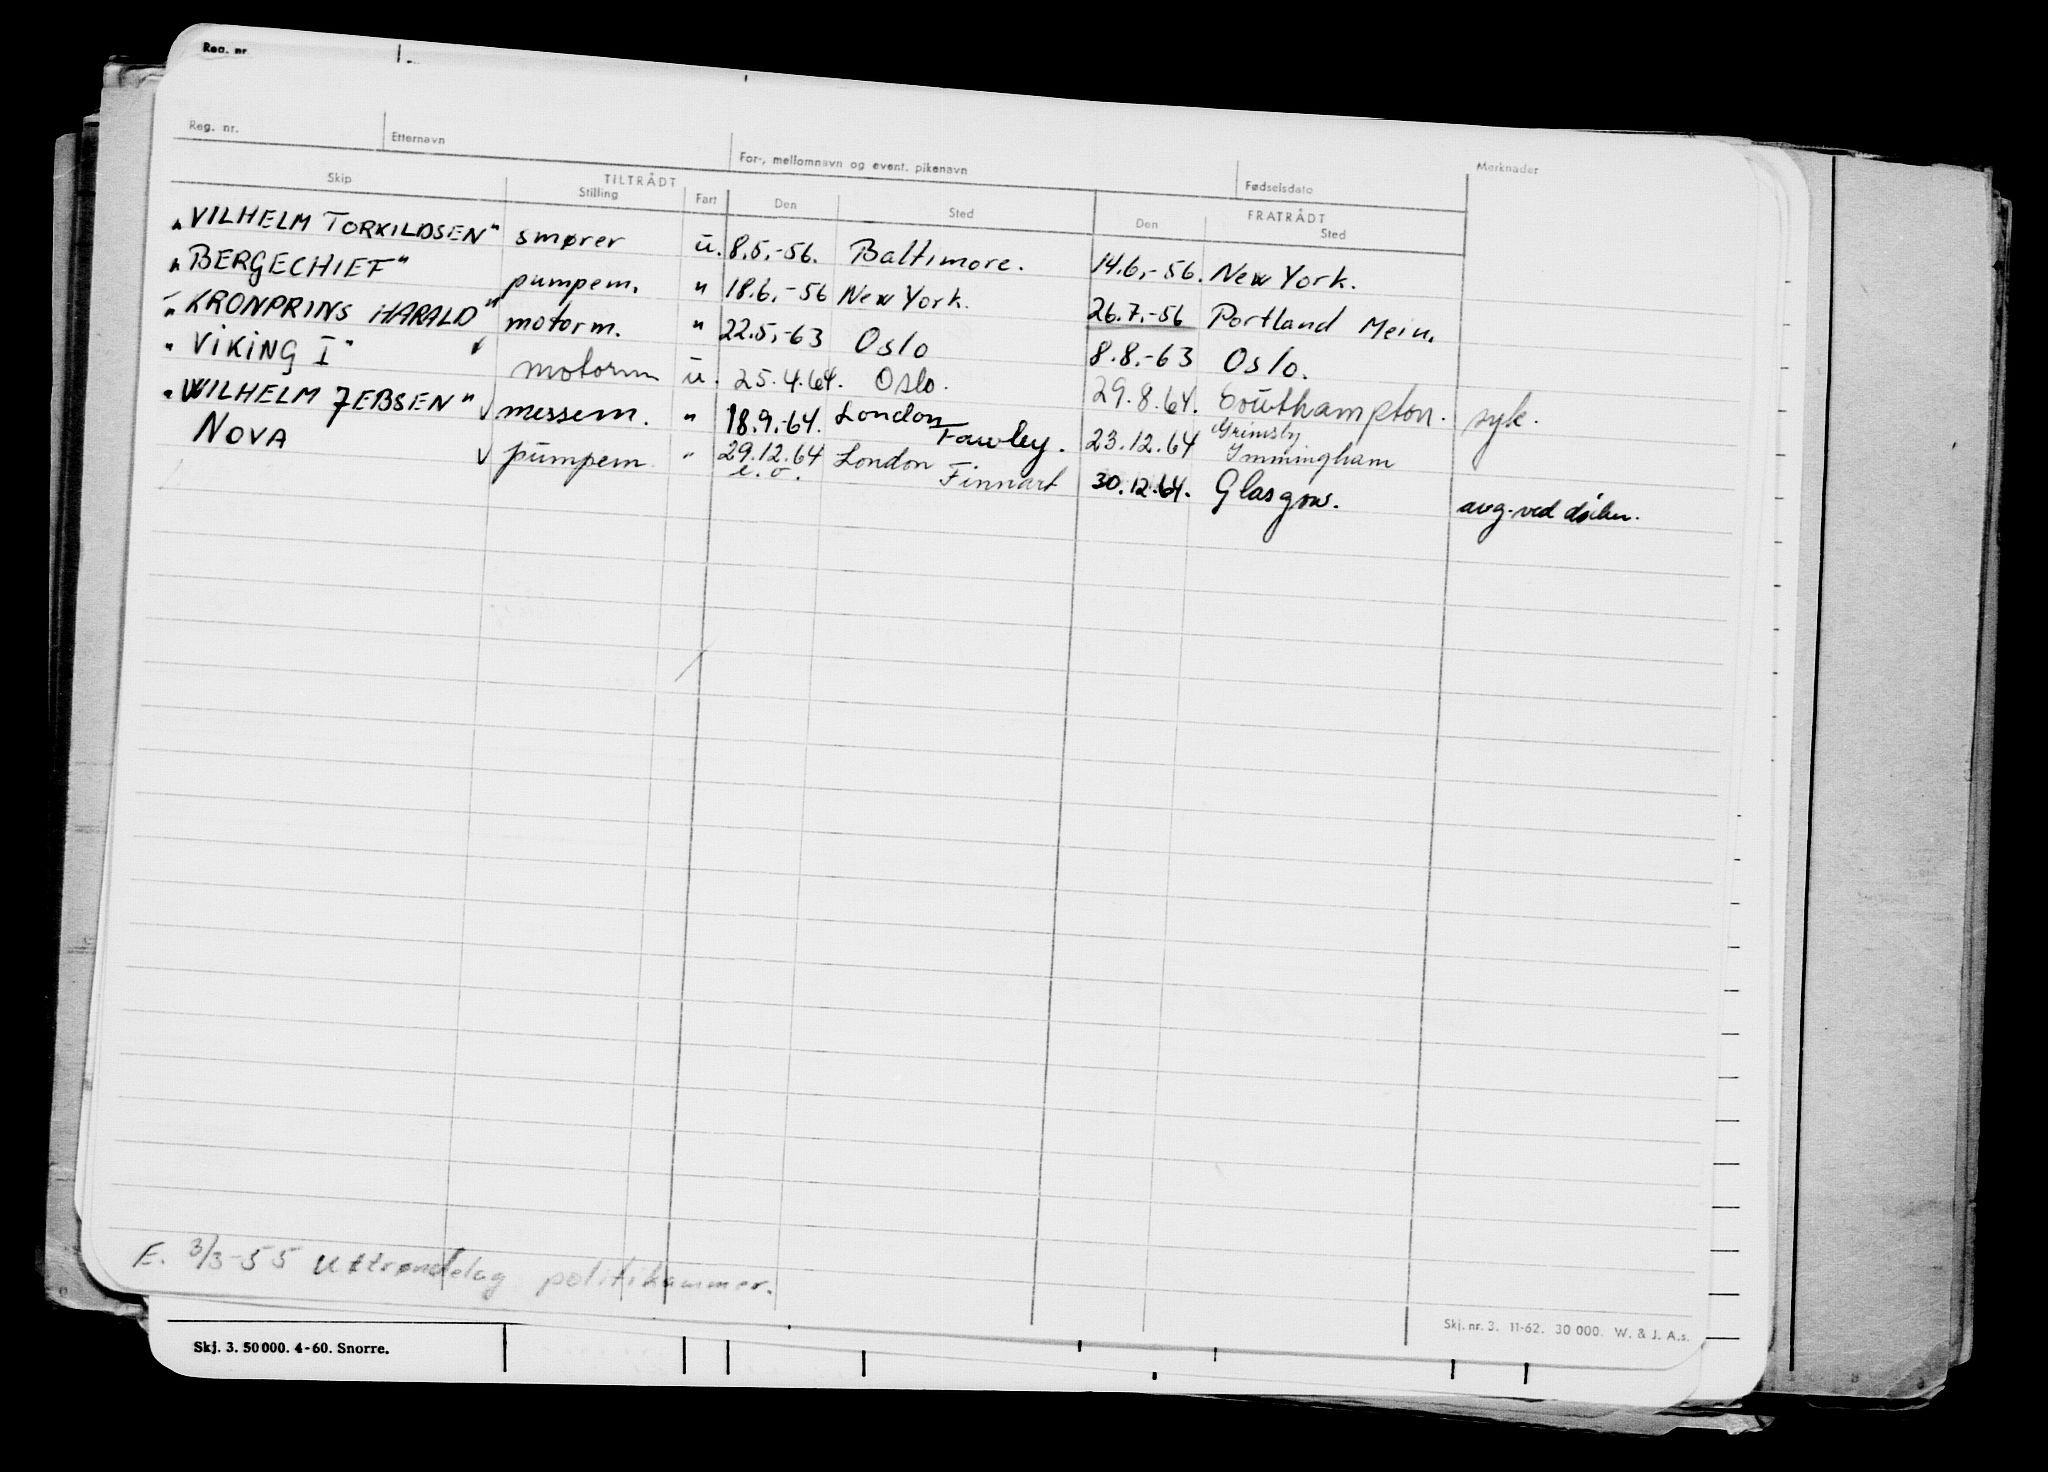 Reg. nr.
Reg. nr. Etternavn For-, mellomnavn og event. pikenavn Fødselsdato Merknader
Skip TILTRÅDT Stilling Fart Den Sted FRATRÅDT Den Sted
"VILHELM TORKILDSEN" smører u. 8.5.-56. Baltimore. 14.6.-56. New York.
"BERGECHIEF" pumpem. " 18.6.-56 New York. 26.7.-56 Portland Mein.
"KRONPRINS HARALD" motorm. " 22.5.-63 Oslo 8.8.-63 Oslo.
"VIKING I" motorm u. 25.4.64. Oslo. 29.8.64. Southampton. syk.
"WILHELM JEBSEN" messem. " 18.9.-64. London Fawley. 23.12.64 Grimsby Immingham
NOVA pumpem " 29.12.64 e.o. London Finnart 30.12.64. Glasgow. avg. ved døden.
E. 3/3-55 Uttrøndelag politikammer.
Skj. nr. 3. 11-62. 30 000. W. & J. A.s.
Skj. 3. 50000. 4-60. Snorre.